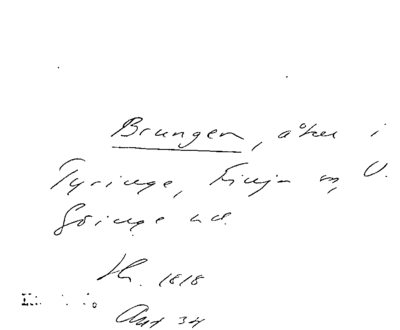 Brungen, åker i
Tyringe, Finja sn, V.
Göinge hd.
1818
Akt 34